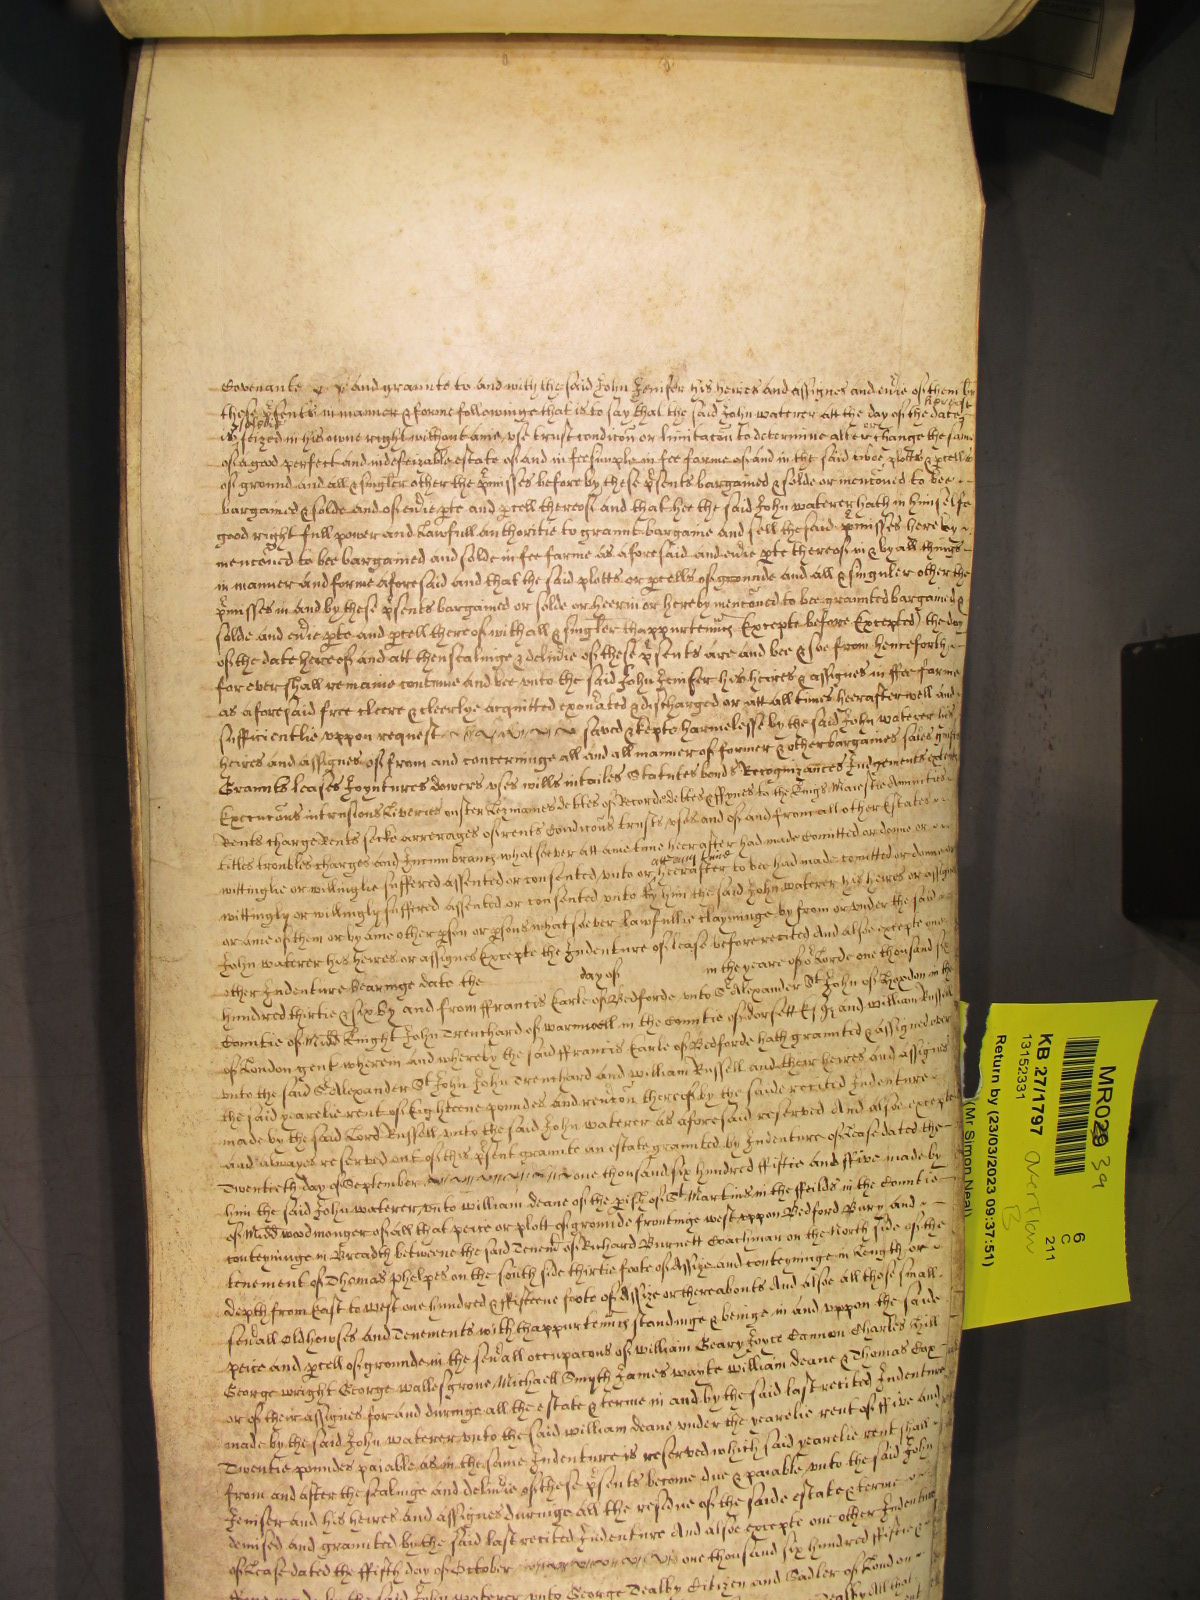 Covenante and graunte to and with the said John Jenifer his heires and assignes and eũie of them by
these p̃sents in manner & forme followinge that is to say that the said John waterer att the day of the date
is seized in his owne right without anie use trust condicõn or limitacõn to determine alter or change the same
of a good perfect and indefeizable estate of and in fee simple in fee farme of and in the said plotts & pcells
of ground and all & singler other the p̃misses before by these p̃sents bargained & solde or mencõned to bee
bargained & solde and of eũie pte and pcell thereof and that hee the said John waterer hath in himselfe
good right full power and Lawfull authoritie to graunt bargaine and sell the said p̃misses hereby
mencõned to bee bargained and solde in fee farme as aforesaid and eũie pte thereof in & by all things
in manner and forme aforesaid and that the said plotts or pcells of grounde and all & singuler other the
p̃misses in and by these p̃sents bargained or solde or heerin or hereby mencõned to bee graunted bargained &
solde and eũie pte and pcell thereof with all & singler thappurtenn̄c (Excepte before Excepted) the day
of the date hereof and att then sealinge & deliũie of these p̃sents are and bee & soe from henceforth
for ever shall remaine continue and bee unto the said John Jenifer his heires & assignes in ffee farme
as aforesaid free cleere & cleerlye acquitted exon̄ated & discharged or att all times heerafter well and
sufficientlie uppon request saved & kepte harmelesse by the said John waterer his
heires and assignes of from and concerninge all and all manner of former & other bargaines sales guifts
Graunts leases Joyntures dowers uses wills intailes Statutes bonds Recognizances Judgements
Execucõns intrusions Liveries debtes of Recorde debtes & ffynes to the Kings Maiestie Annuities
Rents charge Rents secke arrerages of rents Condicõns trusts uses and of and from all other Estates
titles troubles charges and Incumbrancs whatsoever att anie time heerafter had made comitted or donne or
wittinglie or willinglie suffered assented or consented unto or att any time heerafter to bee had made comitted or donne or
wittingly or willingly suffered assented or consented unto by him the said John waterer his heires or assignes
or anie of them or by anie other pson or psons whatsoever lawfullie clayminge by from or under the said
John waterer his heires or assignes Excepte the Indenture of lease before recited And alsoe excepte one
other Indenture bearinge date the day of in the yeare of oũ Lorde one thousand six
hundred thirtie & six by and from ffrancis Earle of Bedforde unto Sr Alexander St John of in the
Countie of Midd Knight John Trenchard of warmwell in the Countie of dorsett Esqr and william Russell
of London gent wherein and whereby the said ffrancis Earle of Bedforde hath graunted & assigned over
unto the said Sr Alexander St John John Trenchard and william Russell and their heires and assignes
the said yearelie rent of Eighteene poundes and revc̃on thereof by the saide recited Indenture
made by the said Lord Russell unto the said John waterer as aforesaid reserved And alsoe excepte
and alwayes reserved out of this p̃sent graunte an estate graunted by Indenture of Lease dated the
Twentieth day of September one thousand six hundred ffiftie and ffive made by
him the said John waterer unto william deane of the pish of St Martins in the ffeilds in the Countie
of Midd woodmonger of all that peice or plott of grounde frontinge west uppon Bedford Bury and
conteyninge in Breadth betweene the said Tenemt of Richard Burnett Coachman on the North side of the
tenement of Thomas phelpes on the south side thirtie foote of Assize and conteyninge in Length or
depth from East to west one hundred & ffifteene foote of Assize or thereabouts And alsoe all those small
seũall old howses and Tenements with thappurtenn̄c standinge & beinge in and uppon the saide
peice and pcell of grounde in the seũall occupacõns of william Geary Joyce Cannon Charles Hill
George wright George wallesgrove Michaell Smyth James wayte william deane & Thomas Cox
or of their assignes for and duringe all the estate & terme in and by the said last recited Indenture
made by the said John waterer unto the said william deane under the yearelie rent of ffive and
Twentie poundes paiable as in the same Indenture is reserved which said yearelie rent shall
from and after the sealinge and deliũie of these p̃sents become due & paiable unto the said John
Jenifer and his heires and assignes duringe all the residue of the saide estate & terme
demised and graunted by the said last recited Indenture And alsoe excepte one other Indenture
of Lease dated the ffifth day of October one thousand six hundred ffiftie &
made by the said John waterer unto George Dealby Citizen and Sadler of London
MR029 39
6
C
211
KB 27/1797
13152331
Overflow
B
Return by (23/03/2023 09:37:51)
(Mr Simon Neal)